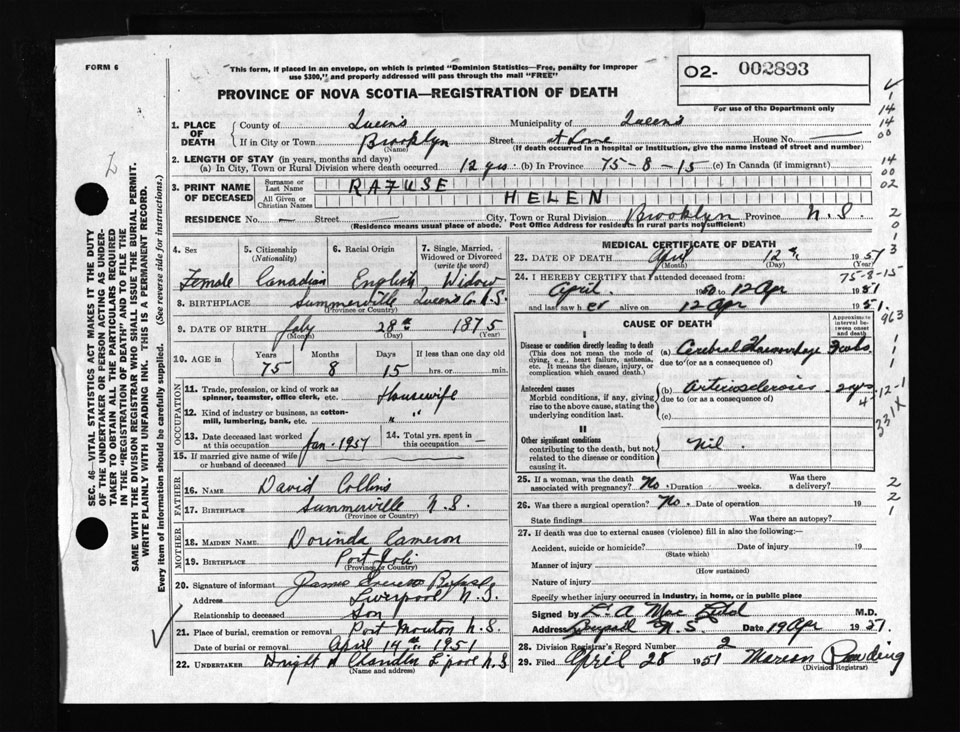 FORM 6
This form, if placed in an envelope, on which is printed "Dominion Statistics—Free, penalty for improper
use $300," and properly addressed will pass through the mail "FREE"
02- 002893
For use of the Department only
PROVINCE OF NOVA SCOTIA—REGISTRATION OF DEATH
1. PLACE OF DEATH { County of Queens Municipality of Queens
If in City or Town Brooklyn Street At Home House No. —
(Name) (If death occurred in a hospital or institution, give the name instead of street and number)
2. LENGTH OF STAY (in years, months and days)
(a) In City, Town or Rural Division where death occurred 12 yrs (b) In Province 75-8-15 (c) In Canada (if immigrant)
3. PRINT NAME OF DECEASED { Surname or Last Name RAFUSE
All Given or Christian Names HELEN
RESIDENCE No. — Street — City, Town or Rural Division Brooklyn Province N.S.
(Residence means usual place of abode. Post Office Address for residents in rural parts not sufficient)
4. Sex 5. Citizenship (Nationality) 6. Racial Origin 7. Single, Married, Widowed or Divorced (write the word)
Female Canadian English Widow
8. BIRTHPLACE Summerville Queens Co. N.S.
(Province or Country)
9. DATE OF BIRTH July 28th 1875
(Month) (Day) (Year)
10. AGE IN Years Months Days If less than one day old
75 8 15 hrs. or min.
OCCUPATION
11. Trade, profession, or kind of work as spinner, teamster, office clerk, etc. Housewife
12. Kind of industry or business, as cotton-mill, lumbering, bank, etc. " "
13. Date deceased last worked at this occupation Jan. 1951 14. Total yrs. spent in this occupation —
15. If married give name of wife or husband of deceased
FATHER
16. NAME David Collins
17. BIRTHPLACE Summerville N.S.
(Province or Country)
MOTHER
18. MAIDEN NAME. Dorinda Cameron
19. BIRTHPLACE Port Joli
(Province or Country)
20. Signature of informant James
Address Liverpool N.S.
Relationship to deceased Son
21. Place of burial, cremation or removal Port Mouton N.S.
Date of burial or removal April 14th 1951
22. UNDERTAKER Chandler L'pool N.S
(Name and address)
MEDICAL CERTIFICATE OF DEATH
23. DATE OF DEATH April 12th 1951
(Month) (Day) (Year)
24. I HEREBY CERTIFY that I attended deceased from: 75-8-15
April 1950 to 12 Apr 1951
and last saw her alive on 12 Apr 1951
CAUSE OF DEATH Approximate interval between onset and death
I
Disease or condition directly leading to death
(This does not mean the mode of dying, e.g., heart failure, asthenia, etc. It means the disease, injury, or complication which caused death.)
(a) Cerebral Haemorrhage
due to (or as a consequence of)
Antecedent causes
Morbid conditions, if any, giving rise to the above cause, stating the underlying condition last.
(b) arteriosclerosis 2 yrs
due to (or as a consequence of)
(c)
II
Other significant conditions
contributing to the death, but not related to the disease or condition causing it.
Nil.
25. If a woman, was the death associated with pregnancy? No Duration weeks. Was there a delivery?
26. Was there a surgical operation? No Date of operation 19
State findings Was there an autopsy?
27. If death was due to external causes (violence) fill in also the following:—
Accident, suicide or homicide? Date of injury 19
(State which)
Manner of injury
(How sustained)
Nature of injury
Specify whether injury occurred in industry, in home, or in public place
Signed by M.D.
Address N.S. Date 19 Apr 19
28. Division Registrar's Record Number 2
29. Filed April 28 1951 Marion
(Division Registrar)
SEC. 46 VITAL STATISTICS ACT MAKES IT THE DUTY
OF THE UNDERTAKER OR PERSON ACTING AS UNDER-
TAKER TO OBTAIN ALL THE PARTICULARS REQUIRED
IN THE "REGISTRATION OF DEATH" AND TO FILE THE
SAME WITH THE DIVISION REGISTRAR WHO SHALL ISSUE THE BURIAL PERMIT.
WRITE PLAINLY WITH UNFADING INK. THIS IS A PERMANENT RECORD.
Every item of information should be carefully supplied. (See reverse side for instructions.)
1
14
14
00
14
00
02
2
0
1
3
963
1
1
1
12-1
331X
2
2
1